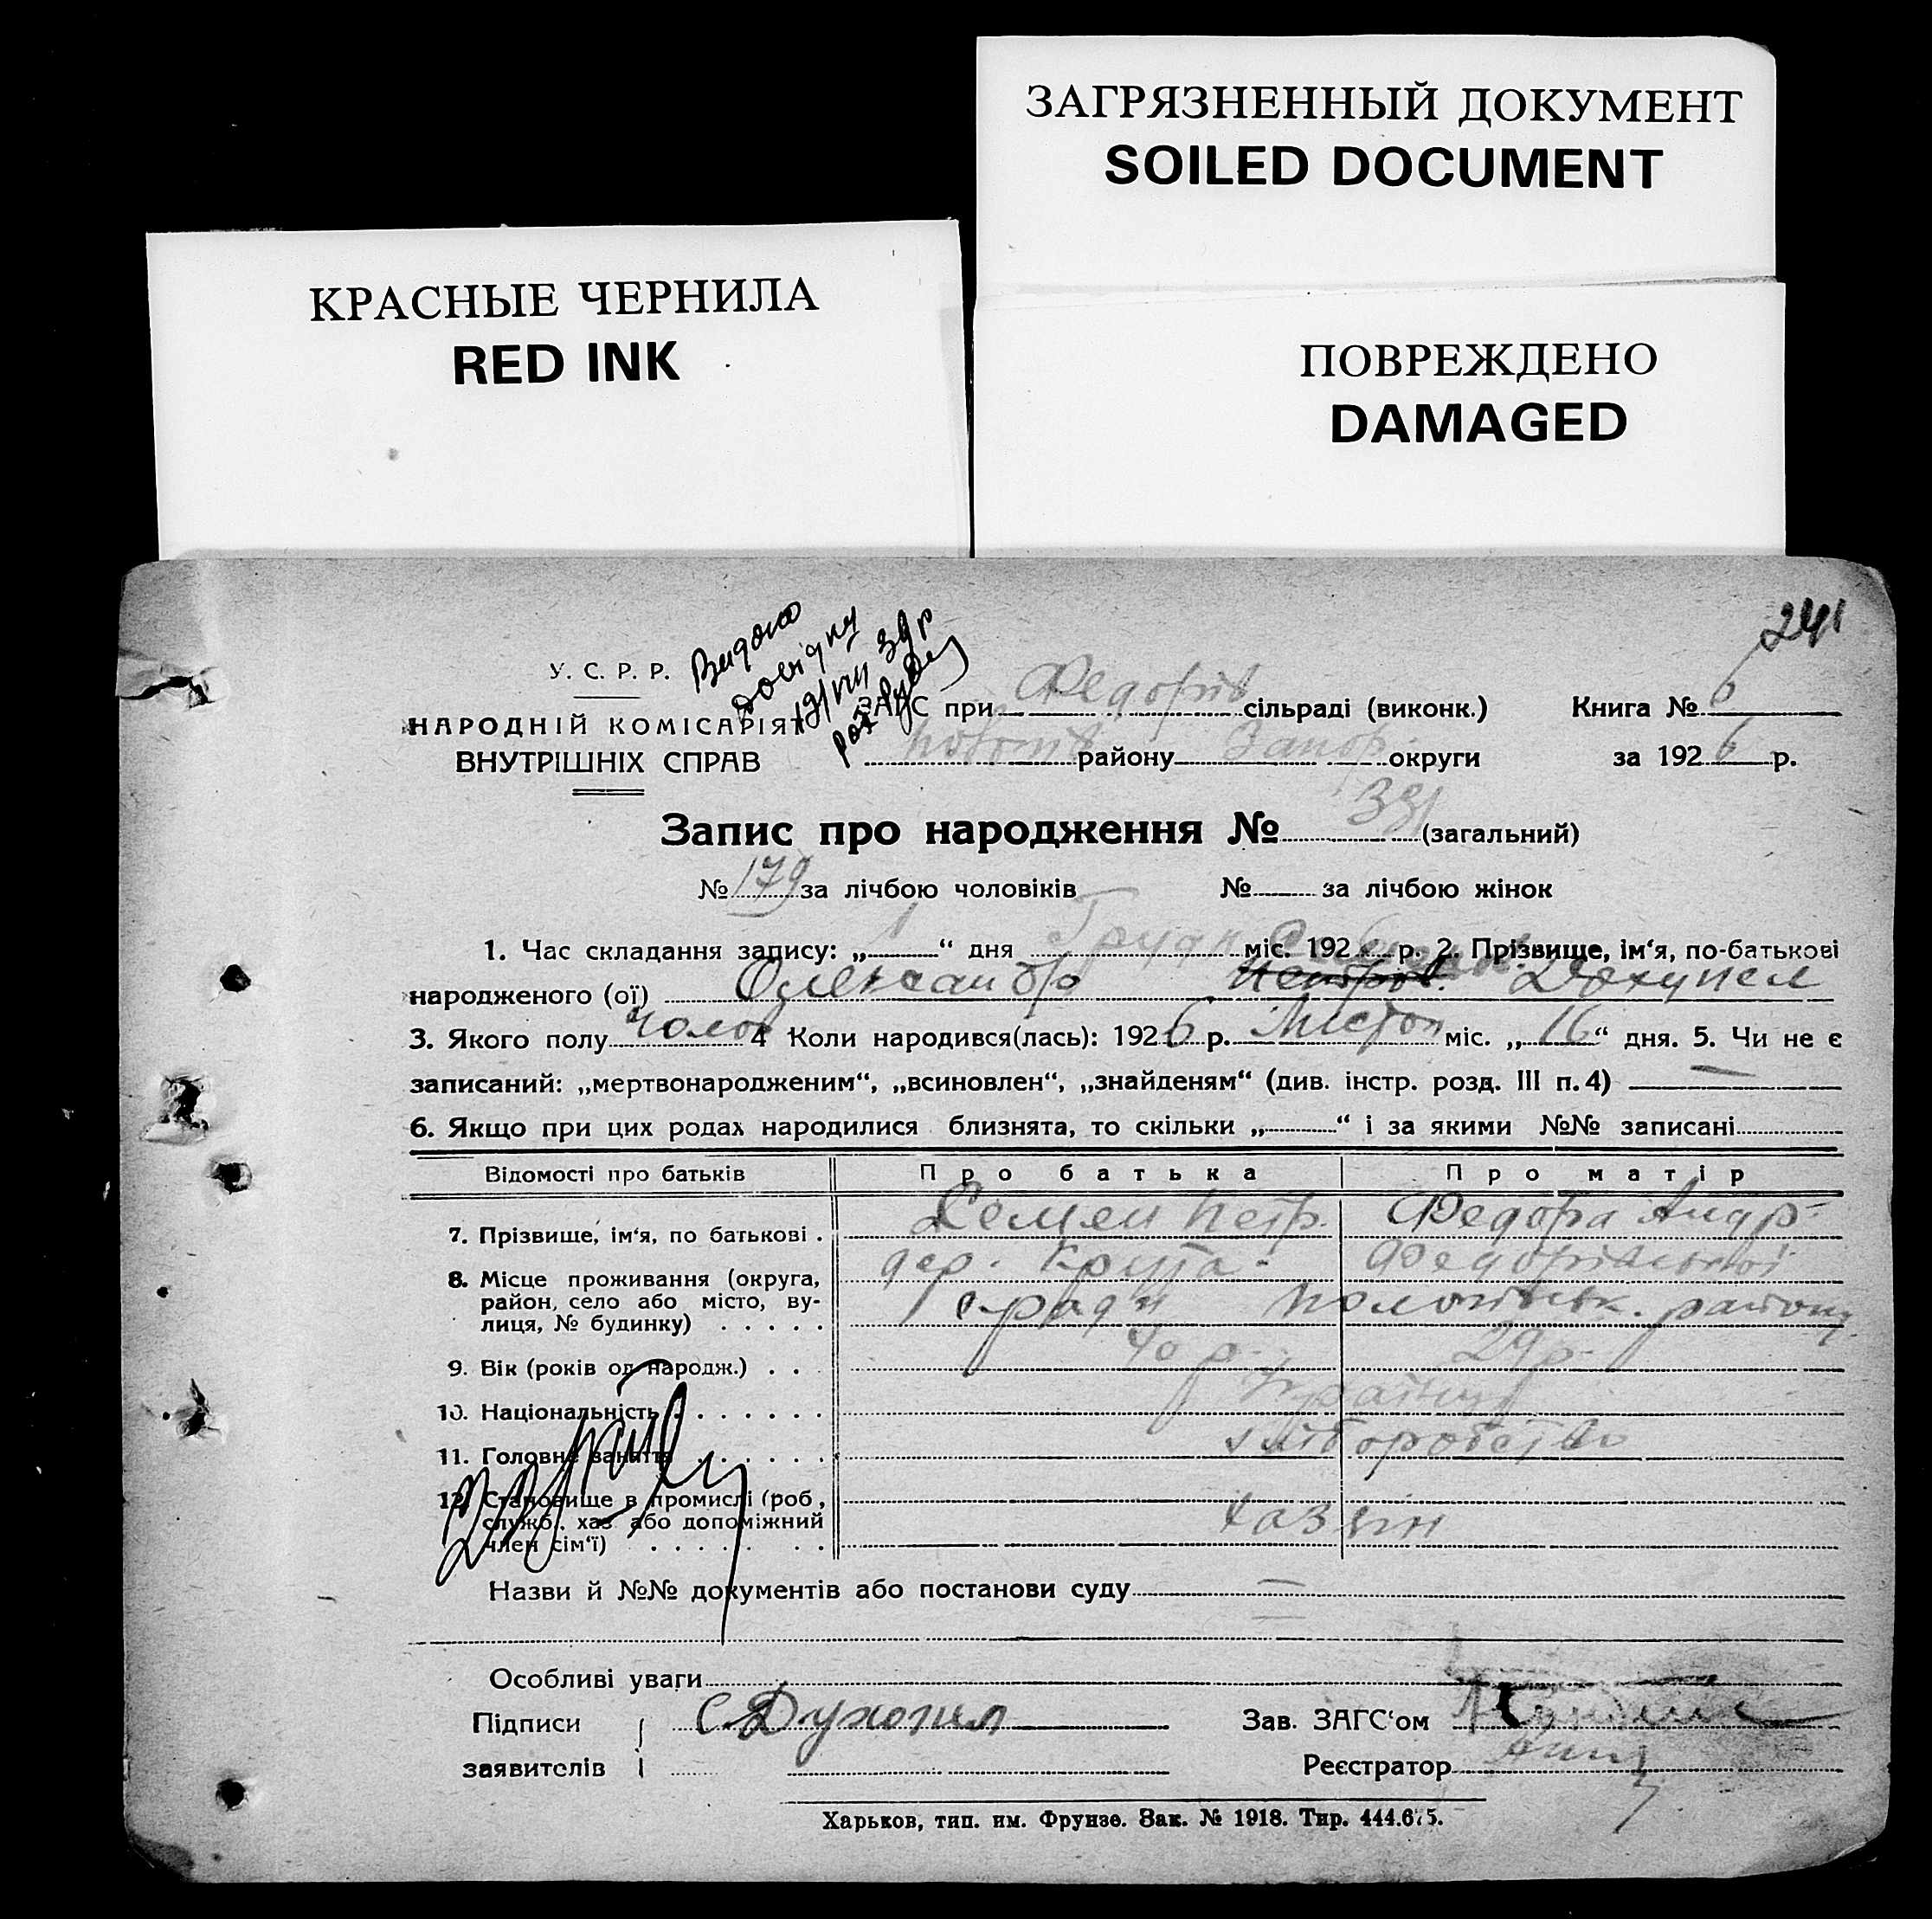 ЗАГРЯЗНЕННЫЙ ДОКУМЕНТ
SOILED DOCUMENT
КРАСНЫЕ ЧЕРНИЛА
RED INK
ПОВРЕЖДЕНО
DAMAGED
241
Видано
довідку
19/VIII 39 р
У. С. Р. Р.
НАРОДНІЙ КОМІСАРІЯТ
ВНУТРІШНІХ СПРАВ
ЗАГС при Федорів сільраді (виконк.) Книга № 6
району Запор. округи за 1926 р.
Запис про народження № (загальний)
№ 179 за лічбою чоловіків № за лічбою жінок
1. Час складання запису: „ 1 “ дня Грудн міс. 192 р. 2. Прізвище, ім‘я, по-батькові
народженого (ої) Олександр
3. Якого полу чолов 4 Коли народився(лась): 1926 р. Листоп міс. „ 16 “ дня. 5. Чи не є
записаний: „мертвонародженим“, „всиновлен“, „знайденям“ (див. інстр. розд. III п. 4) —
6. Якщо при цих родах народилися близнята, то скільки „ “ і за якими №№ записані
Відомості про батьків Про батька Про матір
7. Прізвище, ім‘я, по батькові . Семен Петр. Федора Андр-
8. Місце проживання (округа, дер. Крута - Федорівської
район, село або місто, ву- с/ради Пологівськ. району
лиця, № будинку) . . . . .
9. Вік (років од народж.) . . . 40 р. 29 р.
10. Національність . . . . . . . Українці
11. Головне заняття . . . . . . хліборобство
12. Становище в промислі (роб,
служб., хаз. або допоміжний хазяїн
член сім‘ї) . . . . . . .
Назви й №№ документів або постанови суду —
Особливі уваги
Підписи С. Духопил Зав. ЗАГС‘ом
заявителів Реєстратор
Харьков, тип. им. Фрунзе. Зак. № 1918. Тир. 444.675.